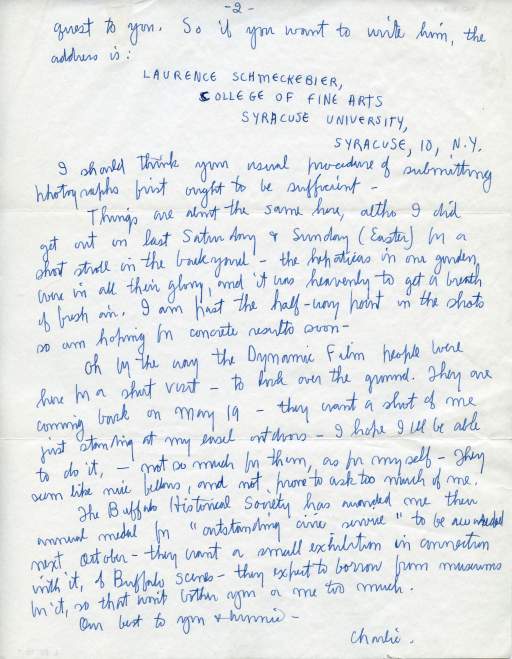 -2-
quest to you. So if you want to write him, the
address is:
LAURENCE SCHMECKEBIER,
COLLEGE OF FINE ARTS
SYRACUSE UNIVERSITY,
SYRACUSE, 10, N.Y.
I should think your usual procedure of submitting
photographs first ought to be sufficient -
Things are about the same here, altho I did
get out on last Saturday & Sunday (Easter) for a
short stroll in the back yard - the hepaticas in our garden
were in all their glory, and it was heavenly to get a breath
of fresh air. I am past the half-way point in the shots
so am hoping for concrete results soon -
Oh by the way the Dynamic Film people were
here for a short visit - to look over the ground. They are
coming back on May 19 - they want a shot of me
just standing at my easel outdoors - I hope I'll be able
to do it, - not so much for them, as for myself - They
seem like nice fellows, and not prone to ask too much of me.
The Buffalo Historical Society has awarded me their
annual medal for "outstanding civic service" to be awarded
next October - they want a small exhibition in connection
with it, of Buffalo scenes - they expect to borrow from museums
for it, so that won't bother you or me too much.
Our best to you &
Charlie.